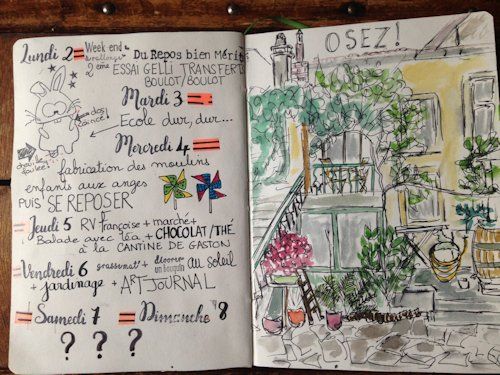 Lundi 2 = Week end & rallonge Du Repos bien Mérit
2ème ESSAI GELLI TRANSFERTS
BOULOT/BOULOT
Mardi 3 =
dos coincé
Ecole dur, dur...
Mercredi 4 =
fabrication des moulins
enfants aux anges
puis SE REPOSER
= Jeudi 5 RV française + marché +
Balade avec Léa + CHOCOLAT/THÉ
à la CANTINE DE GASTON
= Vendredi 6 grassmat' + dévorer un bouquin au soleil
+ jardinage + ART JOURNAL
= Samedi 7 = Dimanche 8
? ? ?
OSEZ!